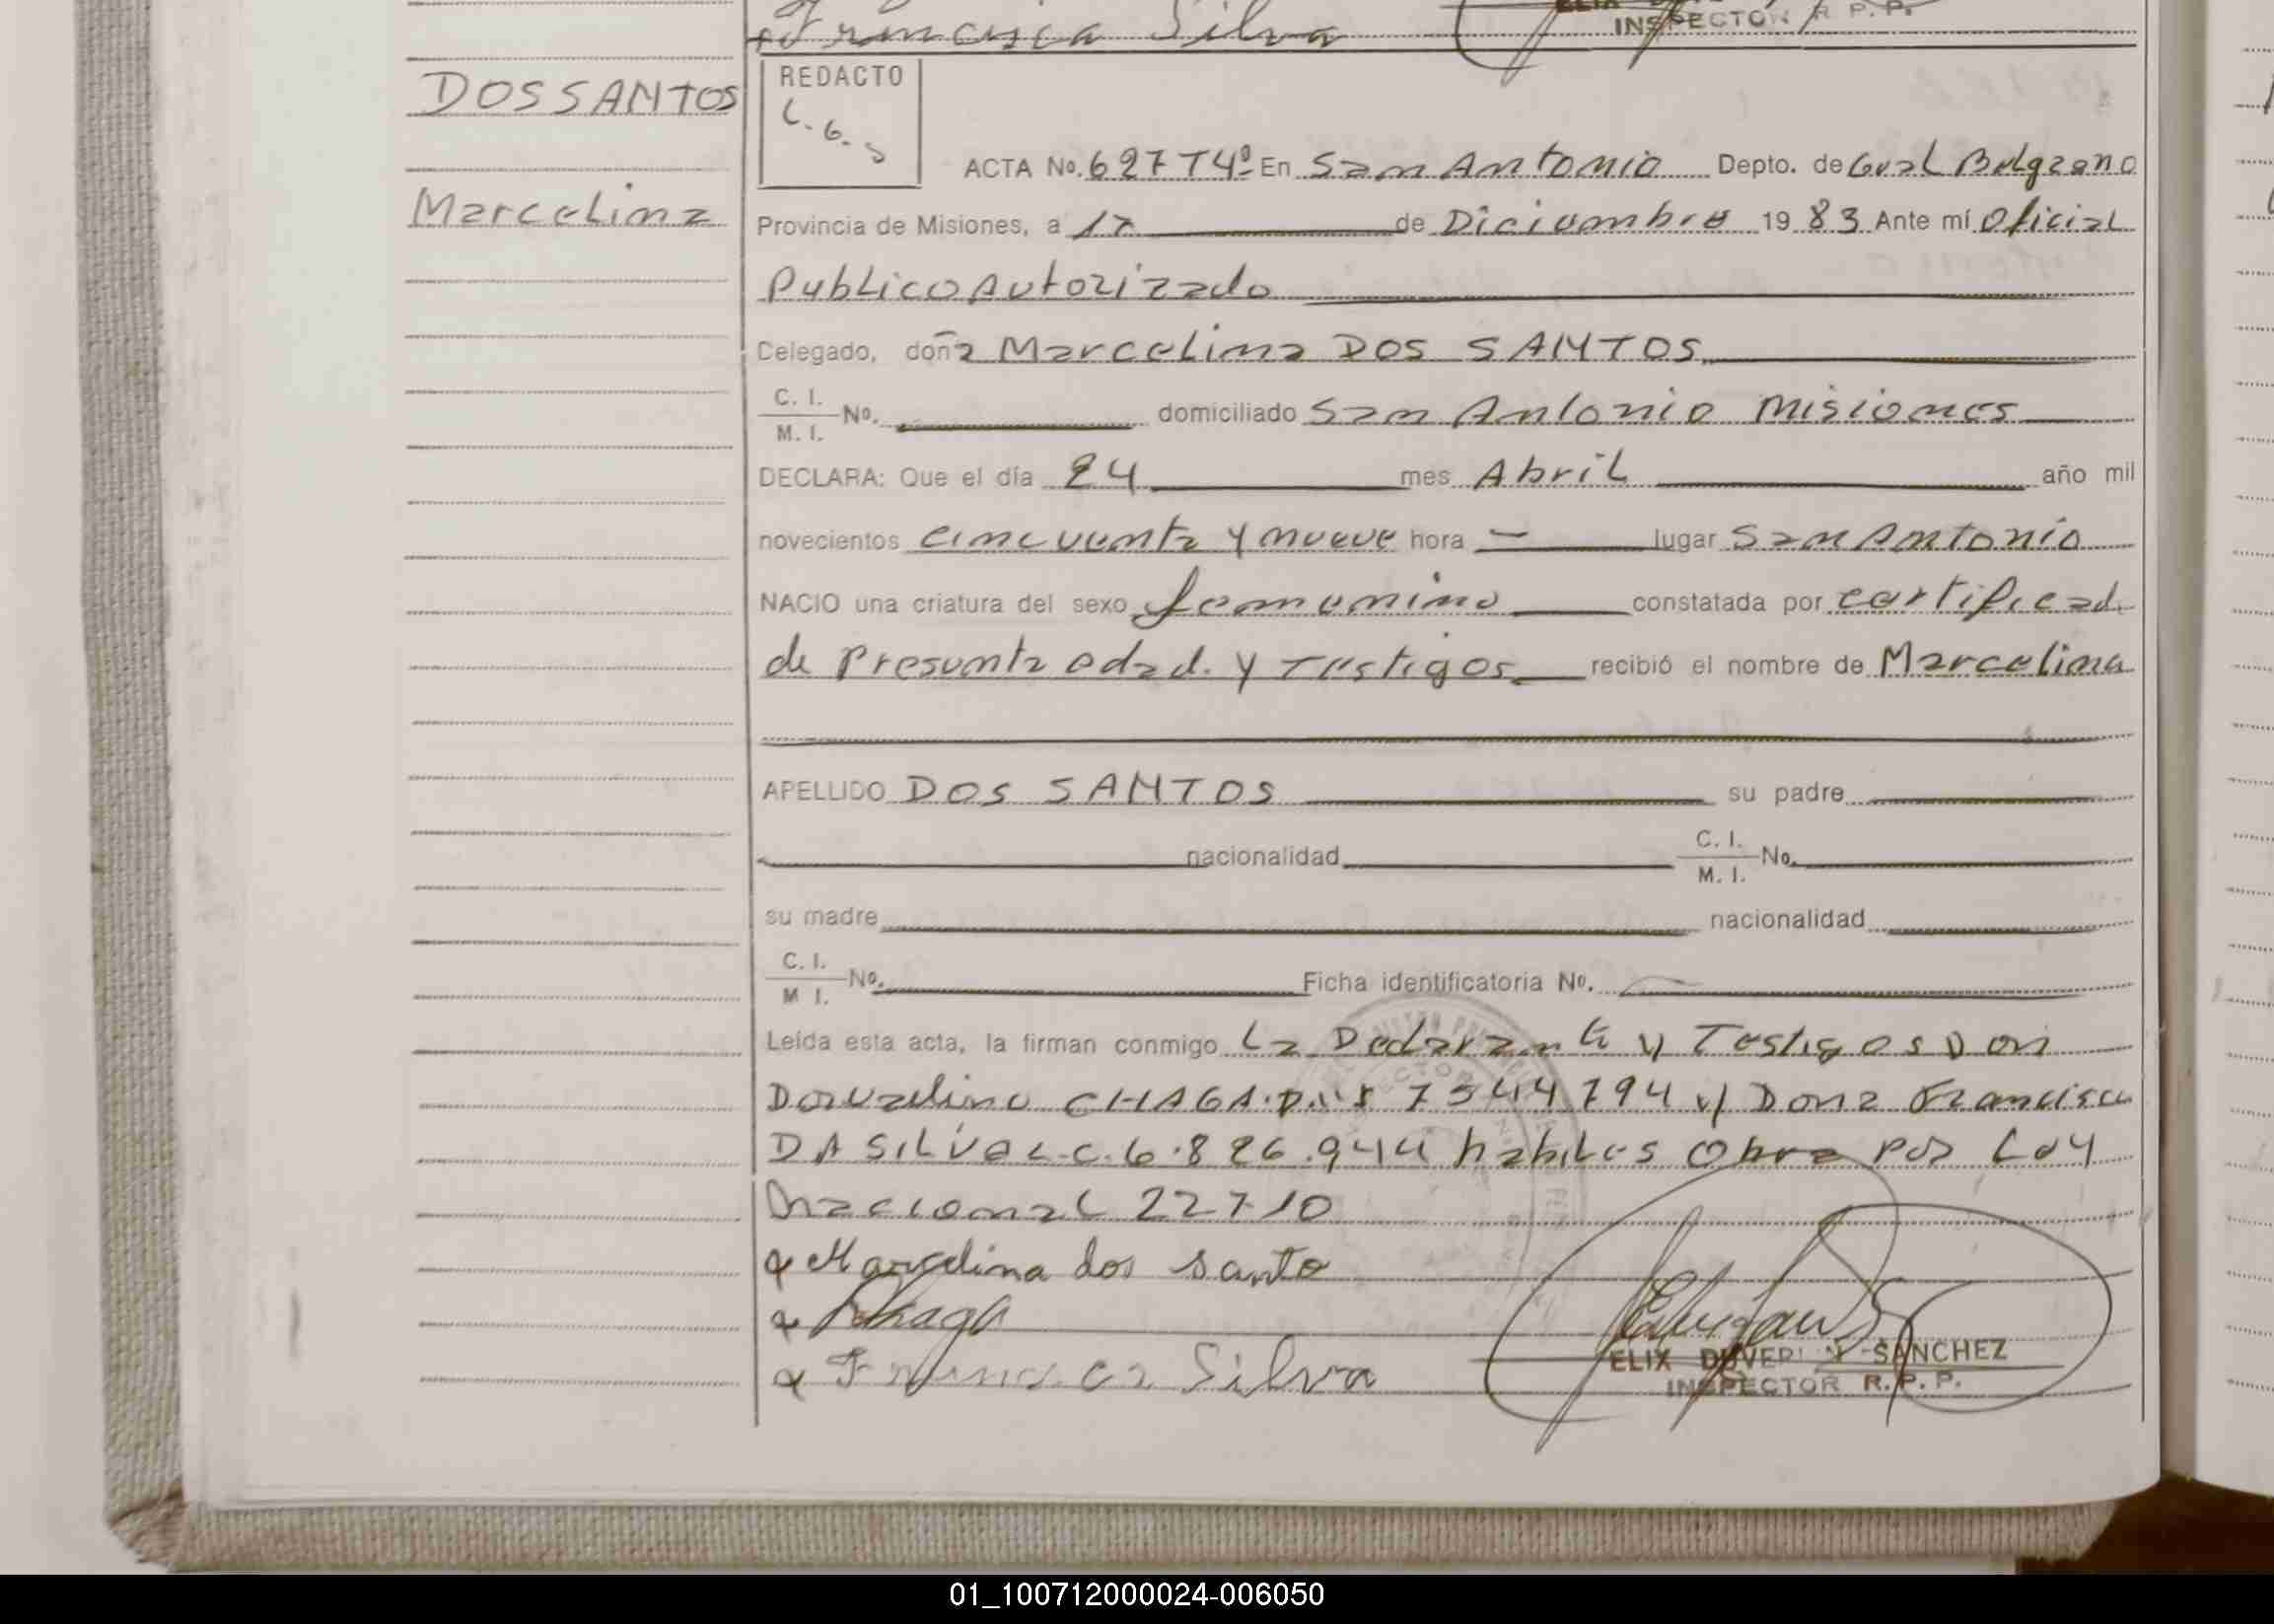 Francisca Silva
INSPECTOR R. P. P.
DOS SANTOS
Marcelina
REDACTO
ACTA No. 627 T4º En San Antonio Depto. de Gral Belgrano
Provincia de Misiones, a 17 de Diciembre 1983 Ante mí Oficial
Publico Autorizado
Celegado, doña Marcelina DOS SANTOS
C. I.
M. I. No. domiciliado San Antonio Misiones
DECLARA: Que el día 24 mes Abril año mil
novecientos cincuenta y nueve hora — lugar San Antonio
NACIO una criatura del sexo femenino constatada por certificad
de Presunta edad. y Testigos recibió el nombre de Marcelina
APELLIDO DOS SANTOS su padre
nacionalidad C. I.
M. I. No.
su madre nacionalidad
C. I.
M I. No. Ficha identificatoria No.
Leída esta acta, la firman conmigo La Declarante y Testigos Don
CHAGA. 7344794 y Dona Francisca
DA SILVA L.C. 6.826.944 habiles Obra por Ley
Nacional 22710
Marcelina dos santo
Chaga
Francisca Silva
ELIX SANCHEZ
INSPECTOR R. P. P.
01_100712000024-006050